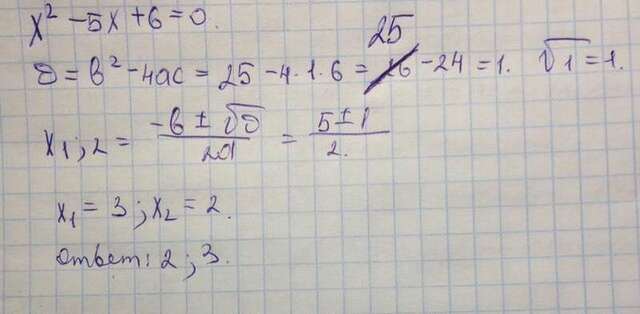 x² - 5x + 6 = 0.
D = b² - 4ac = 25 - 4 · 1 · 6 = 25 - 24 = 1. √1 = 1.
x₁;₂ = (-b ± √D)/2a = (5 ± 1)/2.
x₁ = 3; x₂ = 2.
Ответ: 2; 3.